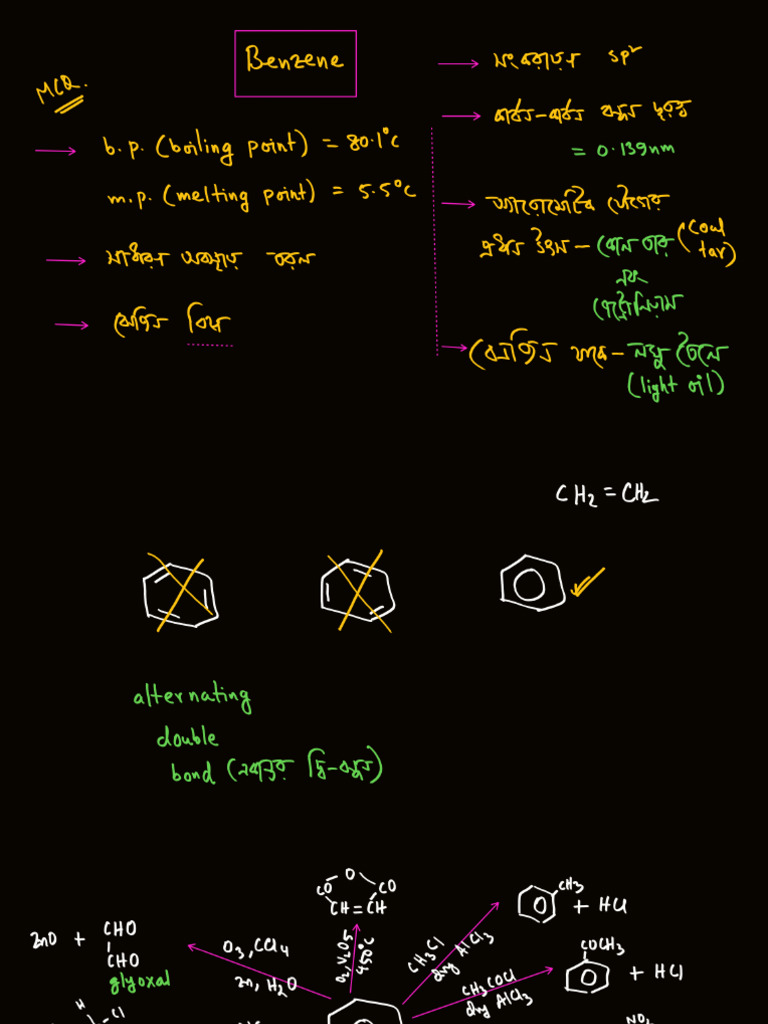 Benzene
MCQ.
→ b.p. (boiling point) = 80.1°C
m.p. (melting point) = 5.5°C
→ সাধারণ অবস্থায় তরল
→ বেনজিন বিষ
→ সংকরায়ন sp²
→ কার্বন-কার্বন বন্ধন দূরত্ব
= 0.139nm
→ অ্যারোমেটিক যৌগের
প্রধান উৎস - কোল তার (coal tar)
এবং
পেট্রোলিয়াম
→ বেনজিন থাকে - লঘু তৈলে
(light oil)
CH2 = CH2
alternating
double
bond (একান্তর দ্বি-বন্ধন)
O
CO CO
CH = CH
CH3
+ HCl
ZnO + CHO
CHO
glyoxal
O3, CCl4
Zn, H2O
O2, V2O5
450°C
CH3Cl
dry AlCl3
COCH3
+ HCl
CH3COCl
dry AlCl3
H
Cl
NO2